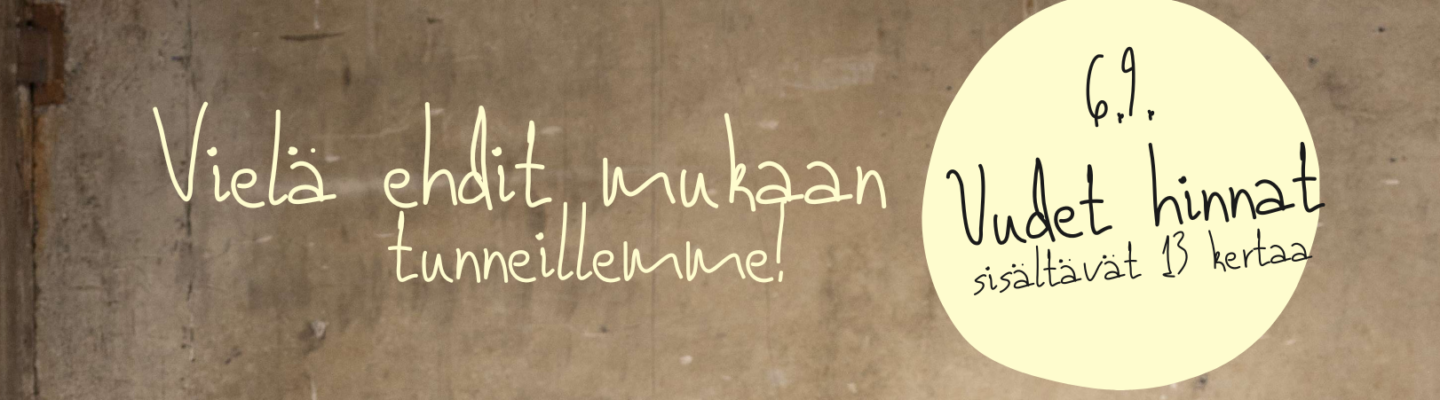 Vielä ehdit mukaan
tunneillemme!
6.9.
Uudet hinnat
sisältävät 13 kertaa